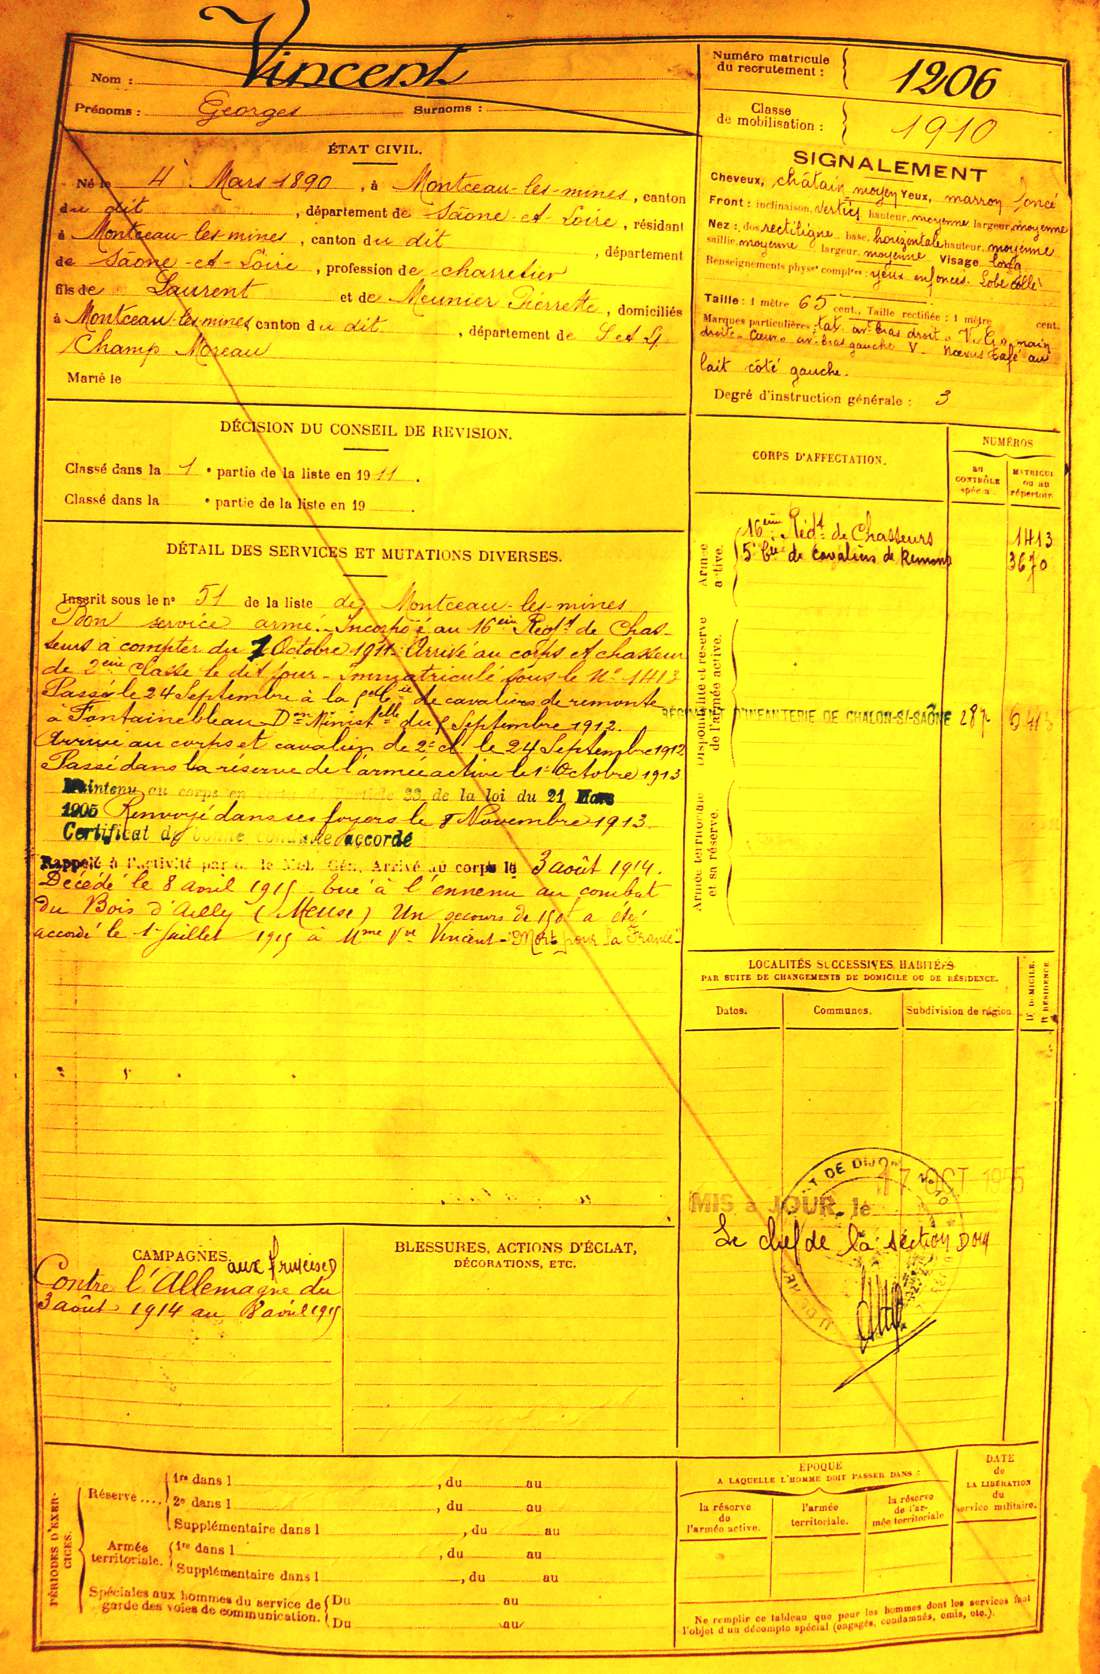 Nom : Vincent
Prénoms : Georges Surnoms :
Numéro matricule du recrutement : 1206
Classe de mobilisation : 1910
ÉTAT CIVIL.
Né le 4 Mars 1890, à Montceau-les-mines, canton
du dit, département de Saône-et-Loire, résidant
à Montceau-les-mines, canton du dit, département
de Saône-et-Loire, profession de charretier
fils de Laurent et de Meunier Pierrette, domiciliés
à Montceau-les-mines canton du dit, département de S et L
Champ Moreau
Marié le
SIGNALEMENT
Cheveux, châtain moyen Yeux, marron foncé
Front : inclinaison, vertical hauteur, moyenne largeur, moyenne
Nez : dos rectiligne base, horizontale hauteur, moyenne
saillie, moyenne largeur, moyenne Visage long
Renseignements physes complres : yeux enfoncés. Lobe collé
Taille : 1 mètre 65 cent., Taille rectifiée : 1 mètre cent.
Marques particulières : tat. av. bras droit. V. G. main
droite. Cœur av. bras gauche V. Nœvus café au
lait côté gauche.
Degré d'instruction générale : 3
DÉCISION DU CONSEIL DE REVISION.
Classé dans la 1e partie de la liste en 1911.
Classé dans la e partie de la liste en 19 .
CORPS D'AFFECTATION.
NUMÉROS
au CONTRÔLE spécial
MATRICULE ou au répertoire
Armée active.
16ème Régt de Chasseurs 1413
5e Cie de cavaliers de Remonte 3670
Disponibilité et réserve de l'armée active.
RÉGIMENT D'INFANTERIE DE CHALON-S/-SAÔNE
Armée territoriale et sa réserve.
DÉTAIL DES SERVICES ET MUTATIONS DIVERSES.
Inscrit sous le no 51 de la liste de Montceau-les-mines
Bon service armé. Incorporé au 16ème Régt de Chas-
seurs à compter du 7 Octobre 1911. Arrivé au corps et chasseur
de 2ème classe le dit jour. Immatriculé sous le No 1413
Passé le 24 Septembre à la 5e Cie de cavaliers de remonte
à Fontainebleau Don Ministelle du 5 Septembre 1912.
Arrivé au corps et cavalier de 2e cl. le 24 Septembre 1912
Passé dans la réserve de l'armée active le 1er Octobre 1913
Maintenu au corps en vertu de l'article 33 de la loi du 21 Mars
1905 Renvoyé dans ses foyers le 8 Novembre 1913
Certificat de bonne conduite accordé
Rappelé à l'activité par Mob. Gén. Arrivé au corps le 3 août 1914.
Décédé le 8 avril 1915 tué à l'ennemi au combat
du Bois d'Ailly (Meuse) Un secours de 150f a été
accordé le 1er Juillet 1915 à Mme Vve Vincent - "Mort pour la France"
LOCALITÉS SUCCESSIVES HABITÉES
PAR SUITE DE CHANGEMENTS DE DOMICILE OU DE RÉSIDENCE.
Dates. Communes. Subdivision de région
D. DOMICILE. R. RÉSIDENCE
MIS à JOUR, le 17 OCT 1955
Le chef de la section
CAMPAGNES
Contre l'Allemagne du
3 août 1914 au 8 avril 1915
BLESSURES, ACTIONS D'ÉCLAT,
DÉCORATIONS, ETC.
PÉRIODES D'EXERCICES.
Réserve....
1re dans l , du au
2e dans l , du au
Supplémentaire dans l , du au
Armée territoriale.
1re dans l , du au
Supplémentaire dans l , du au
Spéciales aux hommes du service de garde des voies de communication.
Du au
Du au
ÉPOQUE
A LAQUELLE L'HOMME DOIT PASSER DANS :
la réserve de l'armée active.
l'armée territoriale.
la réserve de l'armée territoriale
DATE de LA LIBÉRATION du service militaire.
Ne remplir ce tableau que pour les hommes dont les services font
l'objet d'un décompte spécial (engagés, condamnés, omis, etc.).